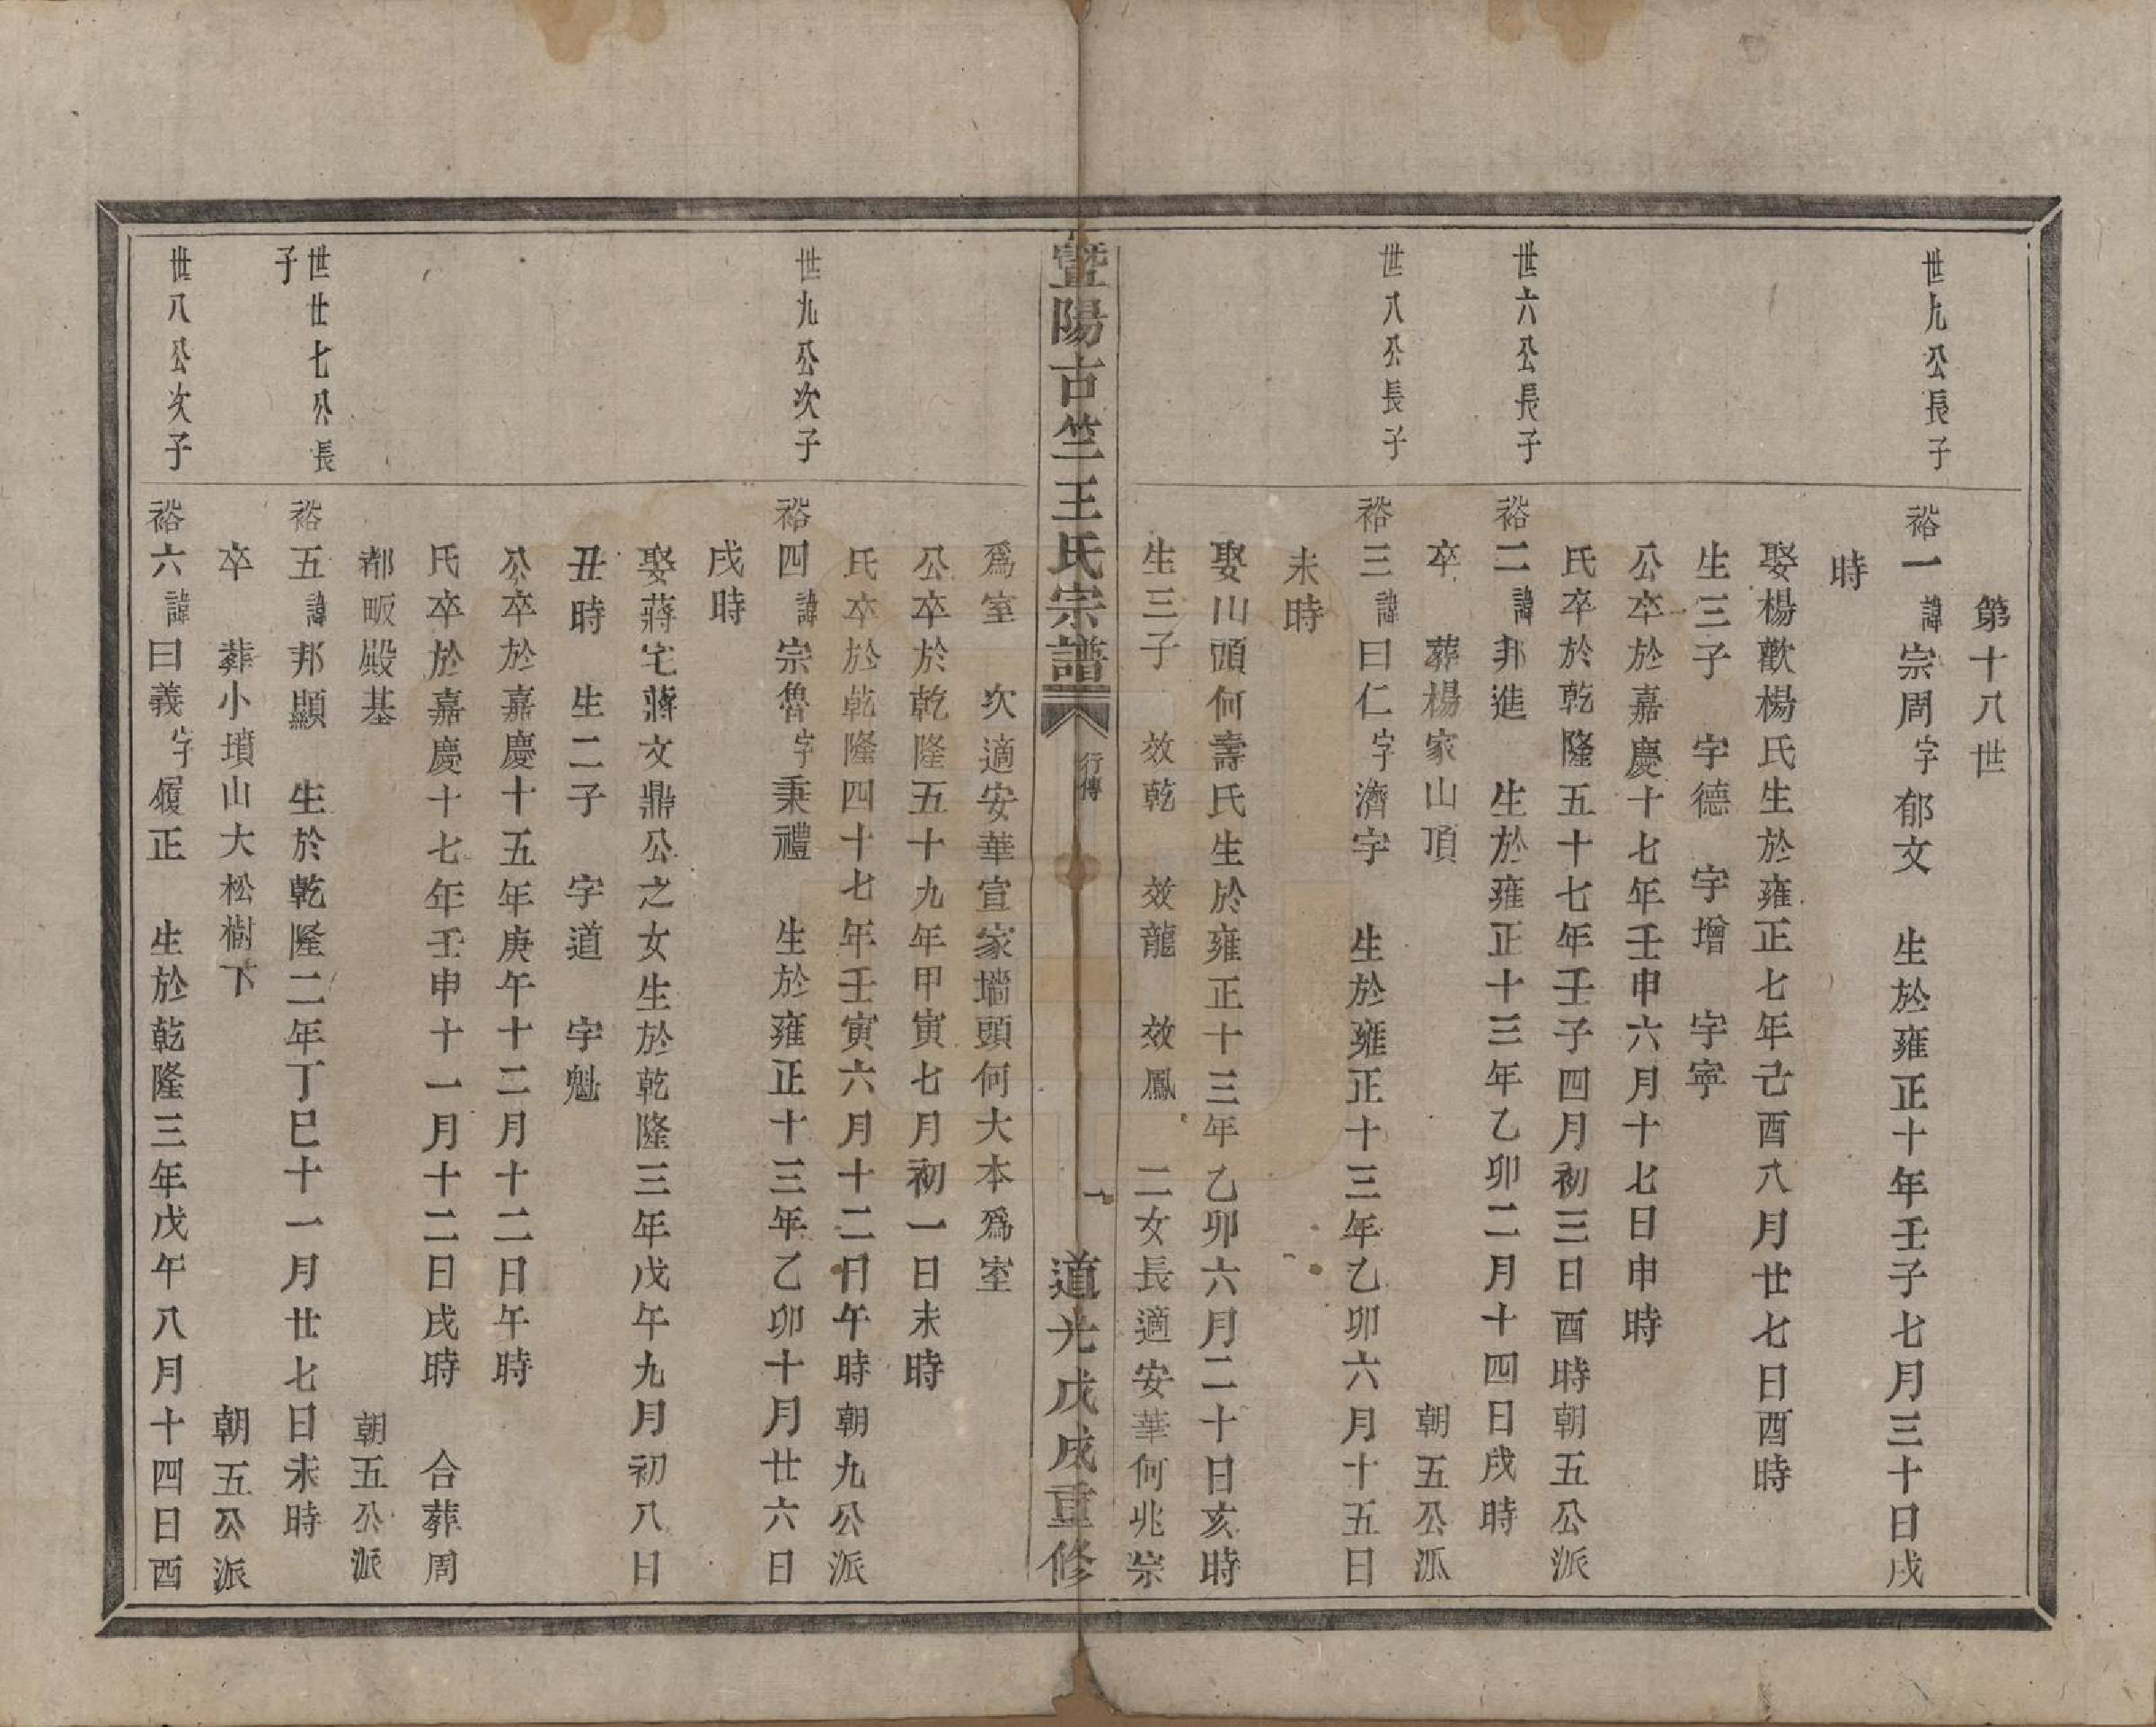 第十八世
世九公長子
裕一諱宗周字郁文　生於雍正十年壬子七月三十日戌
時
娶楊歡楊氏生於雍正七年己酉八月廿七日酉時
生三子　字德　字增　字寧
公卒於嘉慶十七年壬申六月十七日申時
氏卒於乾隆五十七年壬子四月初三日酉時朝五公派
世六公長子
裕二諱邦進　生於雍正十三年乙卯二月十四日戌時
卒　葬楊家山頂　朝五公派
世八公長子
裕三諱曰仁字濟宇　生於雍正十三年乙卯六月十五日
未時
娶山頭何壽氏生於雍正十三年乙卯六月二十日亥時
生三子　效乾　效龍　效鳳　二女長適安華何兆宗
暨陽古竺王氏宗譜　行傳　一　道光戊戌重修
爲室　次適安華宣家墻頭何大本爲室
公卒於乾隆五十九年甲寅七月初一日未時
氏卒於乾隆四十七年壬寅六月十二日午時朝九公派
世九公次子
裕四諱宗魯字秉禮　生於雍正十三年乙卯十月廿六日
戌時
娶蔣宅蔣文鼎公之女生於乾隆三年戊午九月初八日
丑時　生二子　字道　字魁
公卒於嘉慶十五年庚午十二月十二日午時
氏卒於嘉慶十七年壬申十一月十二日戌時　合葬周
都畈殿基　朝五公派
世廿七公長
子
裕五諱邦顯　生於乾隆二年丁巳十一月廿七日未時
卒　葬小墳山大松樹下　朝五公派
世八公次子
裕六諱曰義字履正　生於乾隆三年戊午八月十四日酉